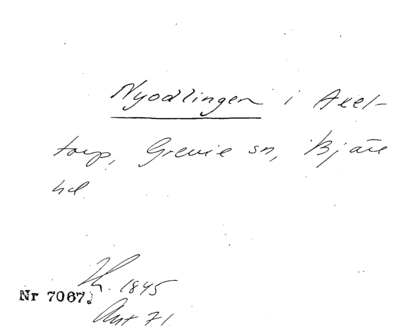 Nyodlingen i Axel-
torp, Grevie sn, Bjäre
hd
1845
Nr 7067.
Ant 71